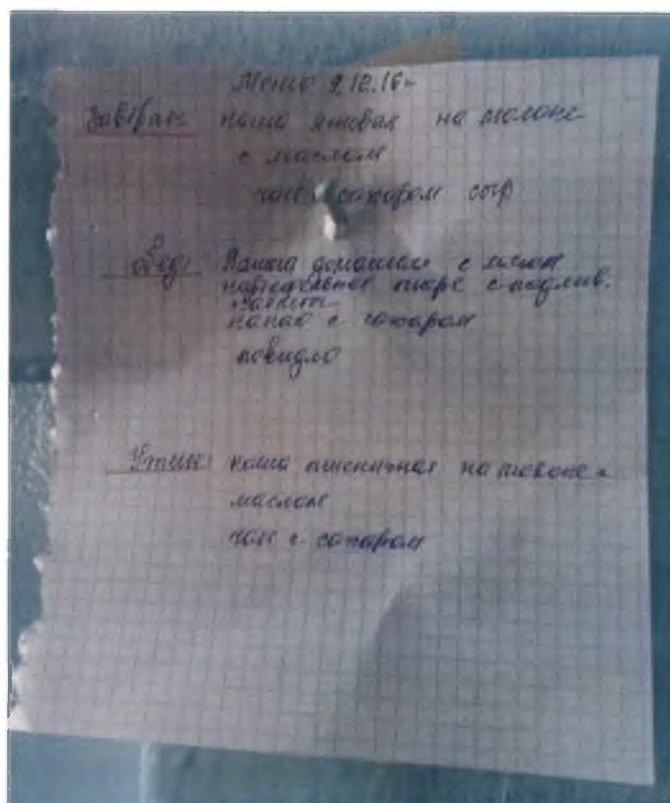 Меню 9.12.16г
Завтрак: каша ячневая на молоке
с маслом
чай с сахаром сыр
Обед: Лапша домашняя с мясом
картофельное пюре с подлив.
какао с сахаром
повидло
Ужин: каша пшеничная на молоке с
маслом
чай с сахаром